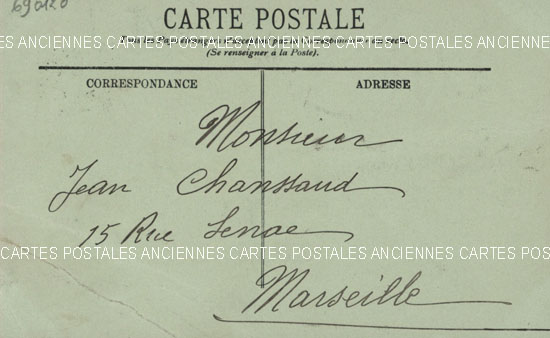 690120
CARTE POSTALE
CARTES POSTALES ANCIENNES CARTES POSTALES ANCIENNES
(Se renseigner à la Poste).
CORRESPONDANCE
ADRESSE
Monsieur
Jean Chanssaud
15 Rue Senac
CARTES POSTALES ANCIENNES CARTES POSTALES ANCIENNES CARTES POSTALES
Marseille